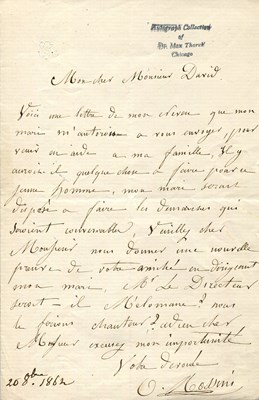 Autograph Collection
of
Dr. Max Thorek
Chicago
Mon cher Monsieur David,
Voilà une lettre de mon neveu que mon
mari m'autorise a vous envoyer, pour
venir en aide a ma famille, Il y
auroit il quelque chose a faire pour ce
jeune homme, mon mari serait
disposé a faire les demarches qui
seroient convenable, Veuillez cher
Monsieur nous donner une nouvelle
preuve de votre amitié en dirigeant
mon mari, Mr Le Directeur
seroit-il Mélomane? nous
le ferions chanter? adieu cher
Monsieur excusez mon importunité
Votre devouée
O. Rossini
20 8bre 1862